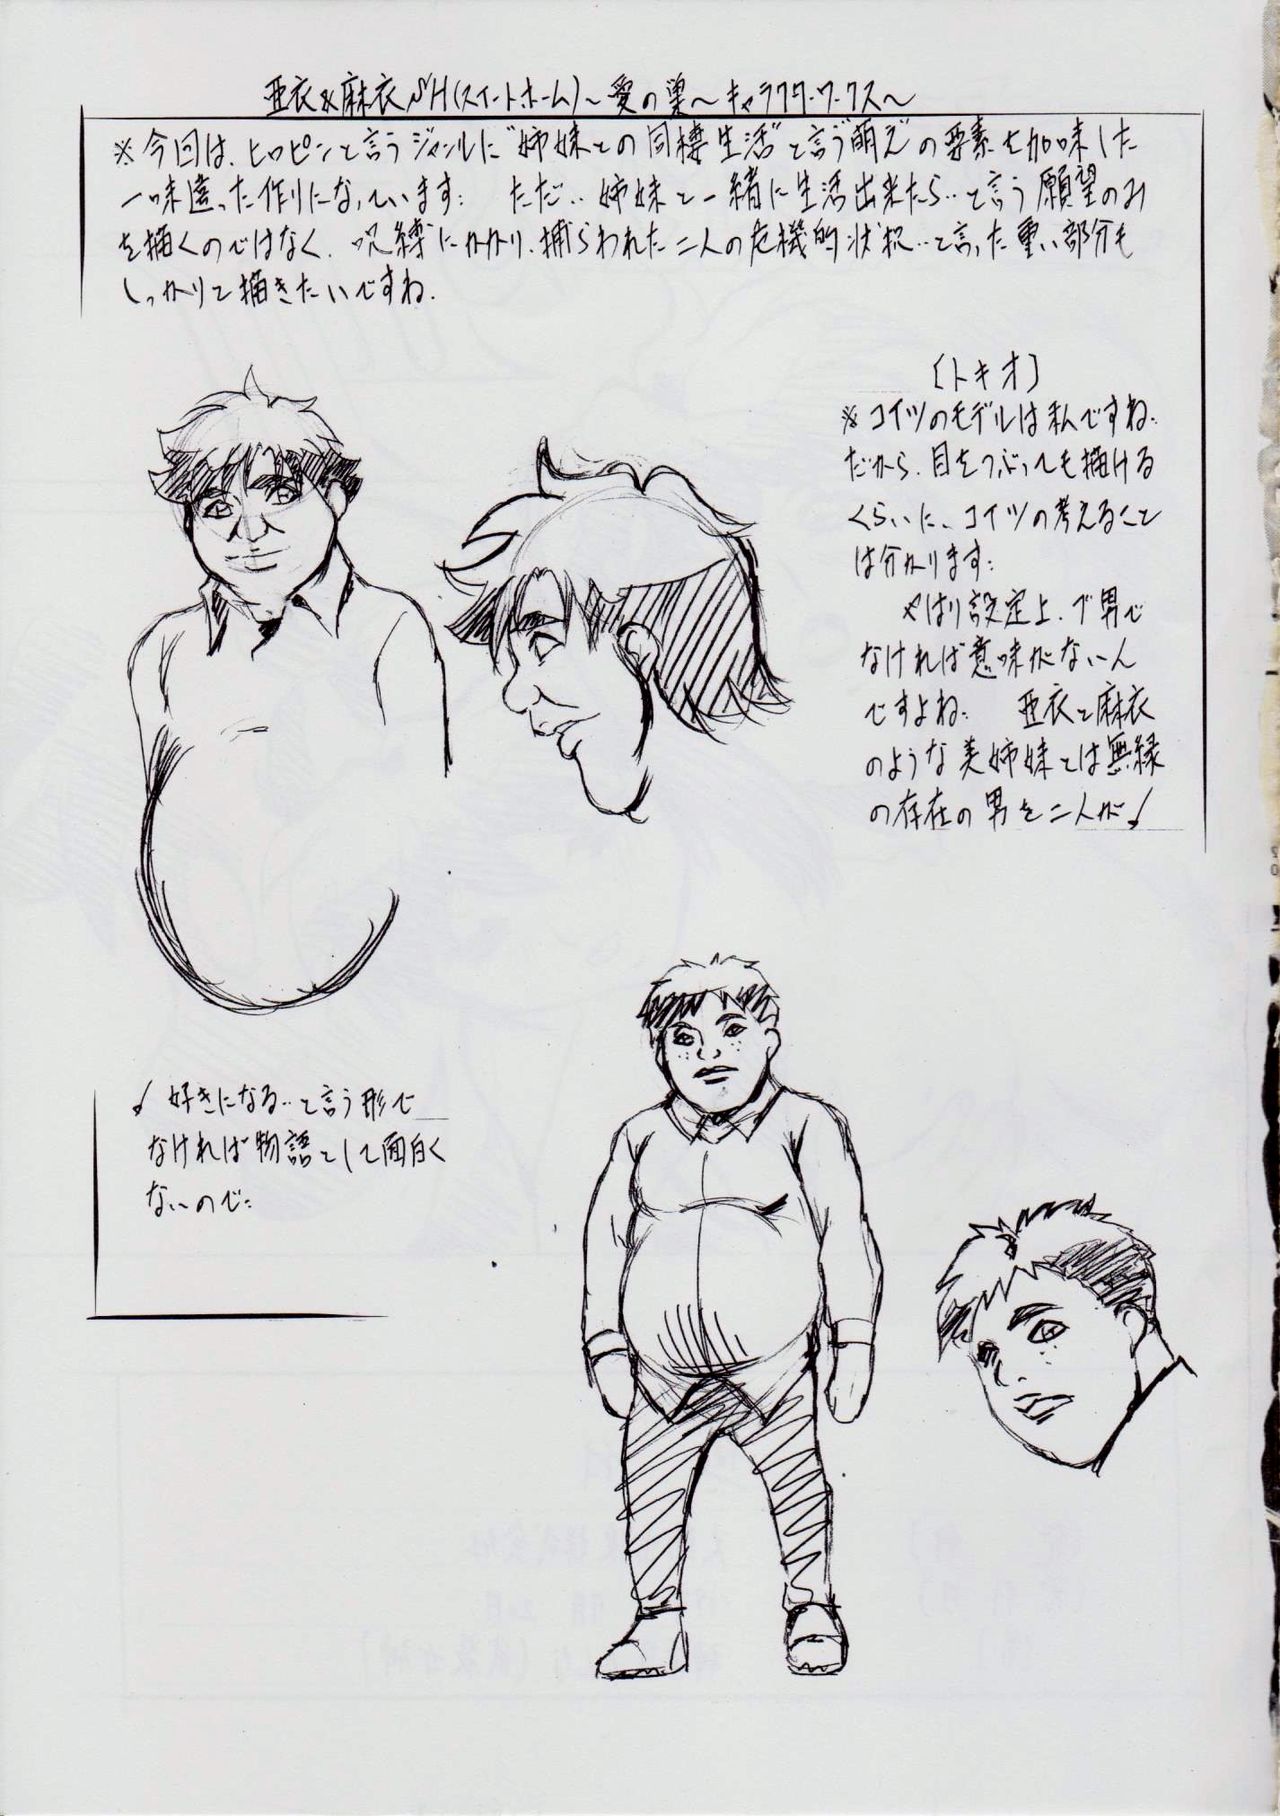 亜衣&麻衣SH(スイートホーム)~愛の巣~キャラクターワークス~
※今回は、ヒロピンと言うジャンルに“姉妹との同棲生活”と言う“萌え”の要素を加味した
一味違った作りになっています: ただ‥姉妹と一緒に生活出来たら‥と言う願望のみ
を描くのではなく、呪縛にかかり、捕らわれた二人の危機的状況‥と言った重い部分も
しっかりと描きたいですね.
〔トキオ〕
※コイツのモデルは私ですね..
だから、目をつぶっても描ける
くらいに、コイツの考えること
は分かります:
やはり設定上、ブ男で
なければ意味がないん
ですよね.. 亜衣と麻衣
のような美姉妹とは無縁
の存在の男を二人が↓
↓好きになる‥と言う形で
なければ物語として面白く
ないので: